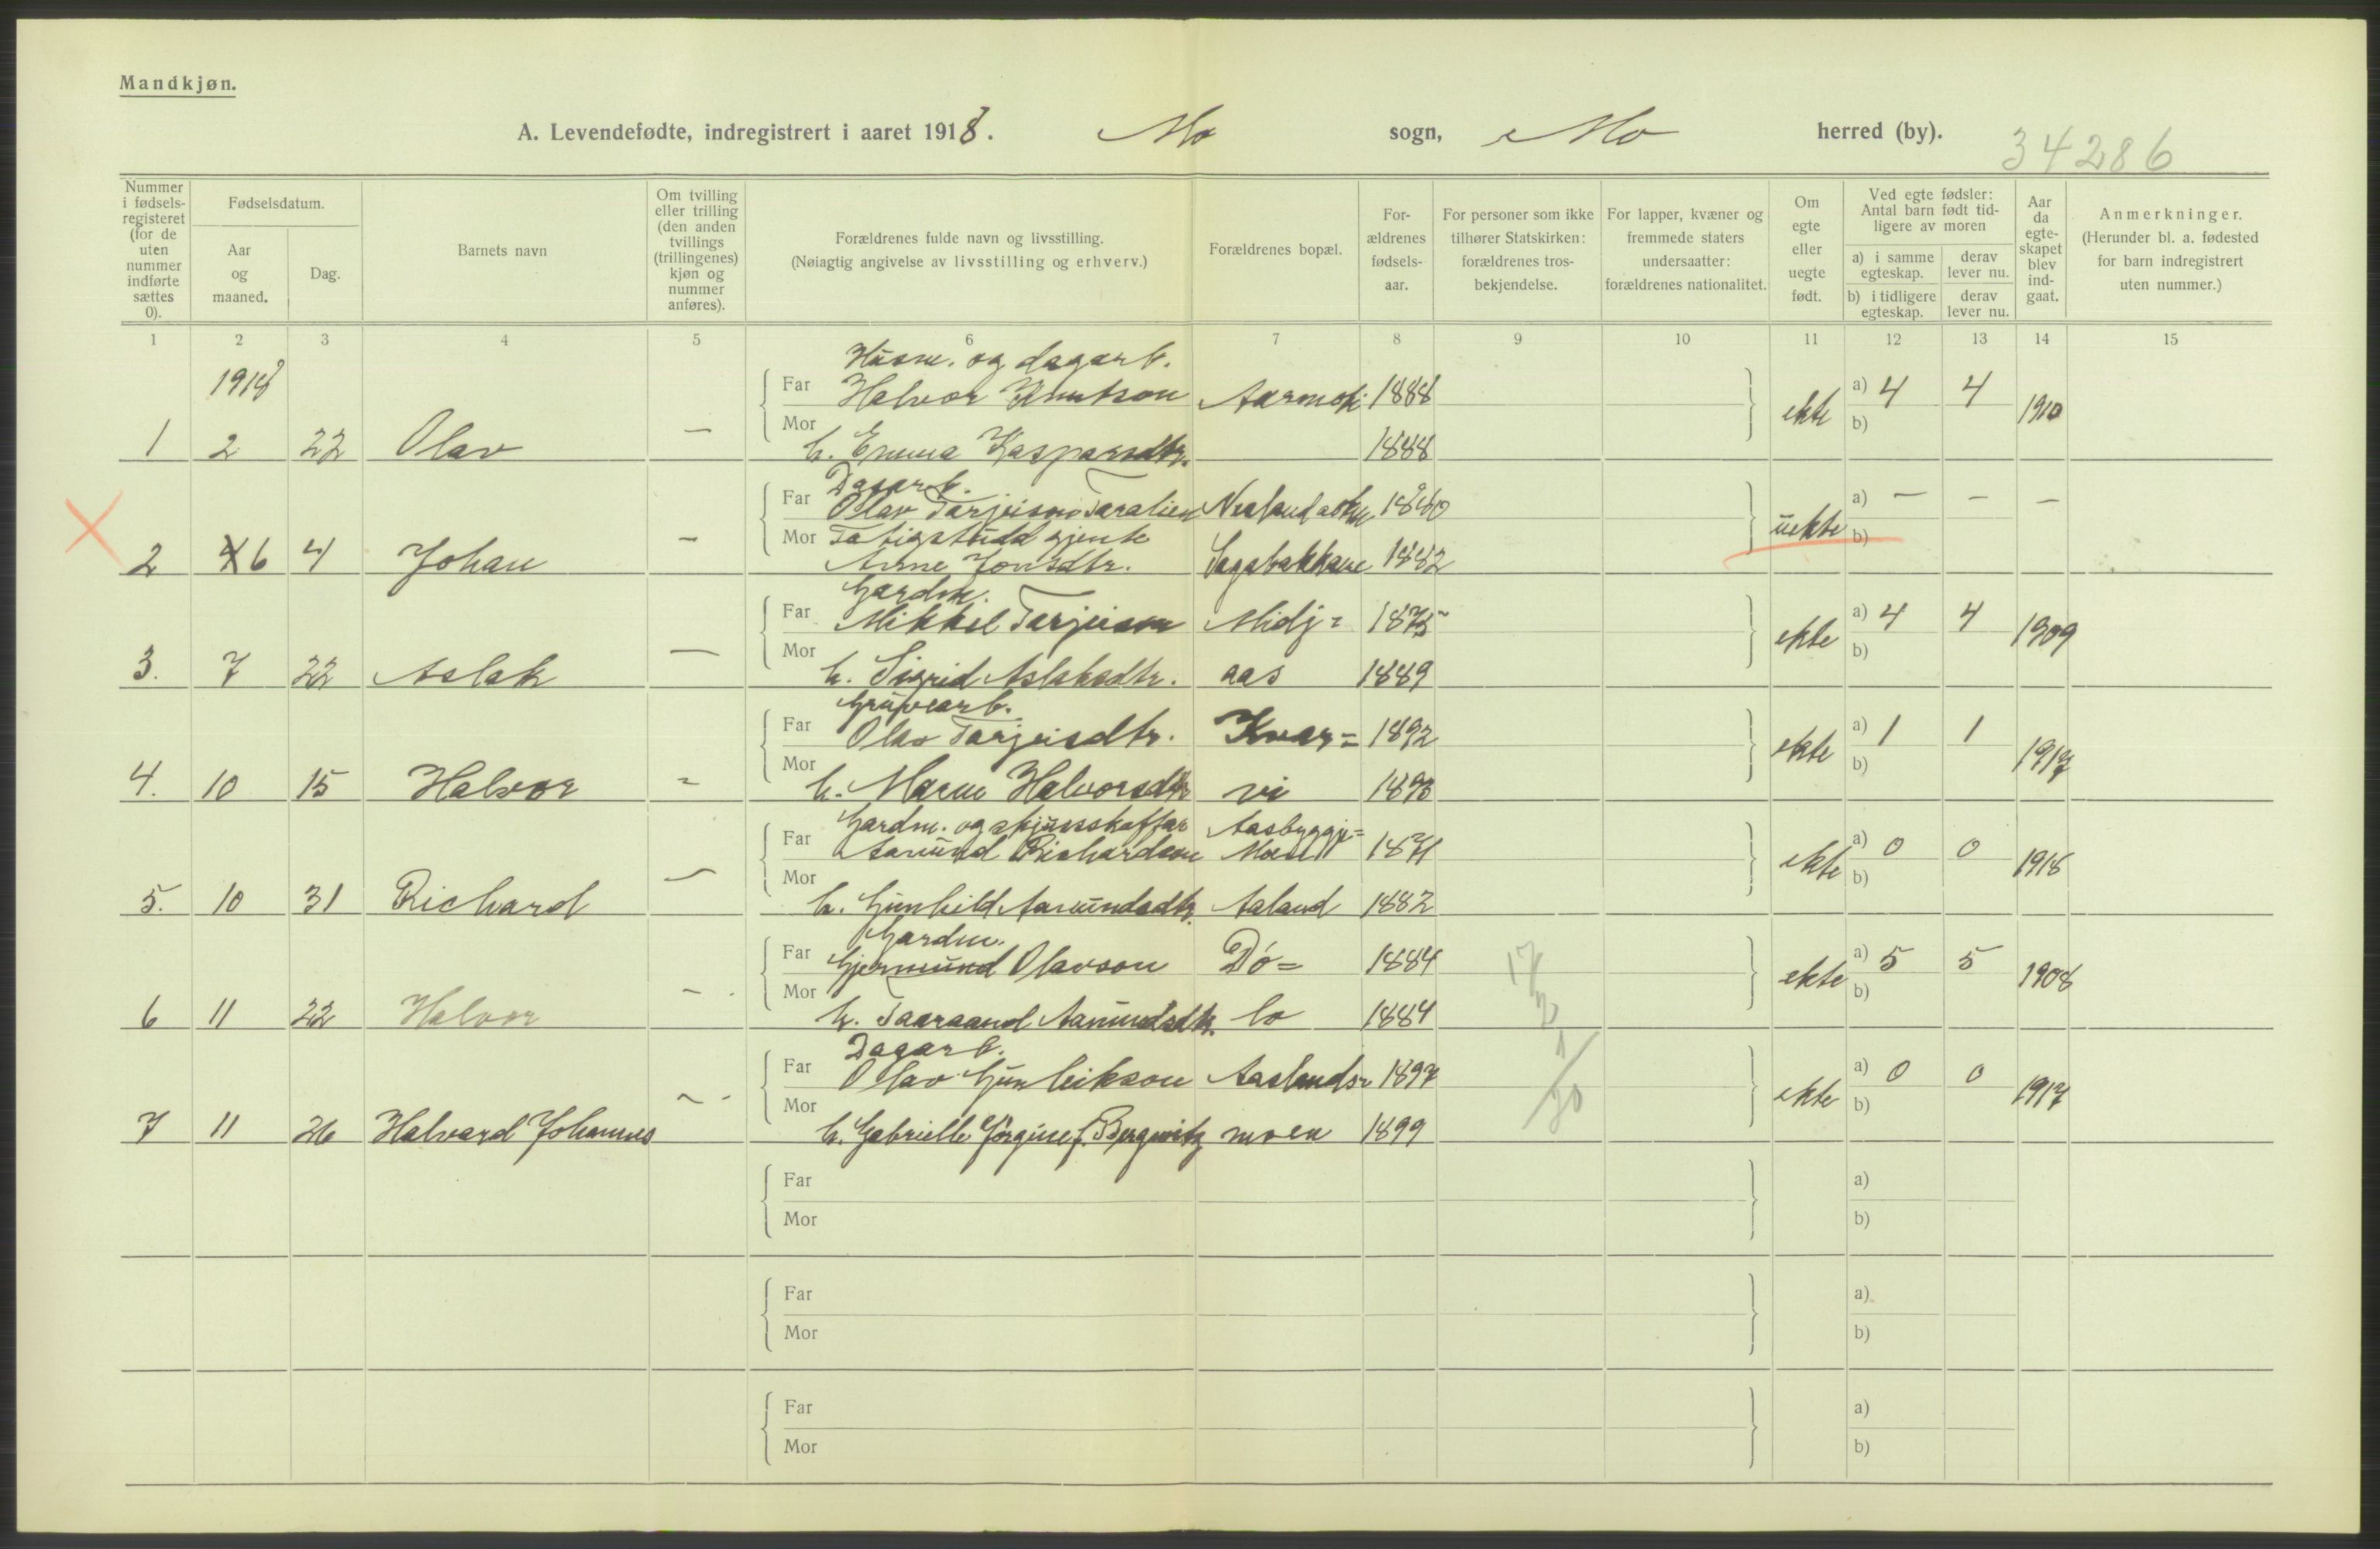 Mandkjøn.
A. Levendefødte, indregistrert i aaret 1918. Mo sogn, Mo herred (by).
34286
Nummer i fødsels-registeret (for de uten nummer indførte sættes 0).
Fødselsdatum.
Aar og maaned.
Dag.
Barnets navn
Om tvilling eller trilling (den anden tvillings (trillingenes) kjøn og nummer anføres).
Forældrenes fulde navn og livsstilling.
(Nøiagtig angivelse av livsstilling og erhverv.)
Forældrenes bopæl.
For-ældrenes fødsels-aar.
For personer som ikke tilhører Statskirken: forældrenes tros-bekjendelse.
For lapper, kvæner og fremmede staters undersaatter: forældrenes nationalitet.
Om egte eller uegte født.
Ved egte fødsler: Antal barn født tid-ligere av moren
a) i samme egteskap.
derav lever nu.
b) i tidligere egteskap.
derav lever nu.
Aar da egte-skapet blev ind-gaat.
Anmerkninger.
(Herunder bl. a. fødested for barn indregistrert uten nummer.)
1 2 3 4 5 6 7 8 9 10 11 12 13 14 15
Husm. og dagarb.
1918 Far Halvor Knutson Aarmoti 1888 ekte a) 4 4 1910
1 2 22 Olav — Mor h. Emma Kaspersdtr. 1888 b)
Dagarb.
Far Olav Tarjeison Taralien 1880 uekte a) — — —
Mor Fatigstudd gjente
2 6 4 Johan — Anne Jonsdtr. Sagabakkane 1882 b)
Gardm.
Far Mikkel Tarjeison Midj= 1875 ekte a) 4 4 1909
3. 7 22 Aslak — Mor h. Sigrid Aslaksdtr. aas 1889 b)
Gruvearb.
Far Olav Tarjeisdtr. Kvar= 1892 ekte a) 1 1 1917
4. 10 15 Halvor = Mor h. Maren Halvorsdtr vi b)
Gardm. og skjussskaffar Aasbyggje=
Far Aamund Richardson 1871 ekte a) 0 0 1918
5. 10 31 Richard — Mor h. Gunhild Aamundsdtr. Aaland 1882 b)
Gardm.
Far Gjermund Olavson Dó= 1884 ekte a) 5 5 1908
6 11 22 Halvor — Mor h. Taaraand Aamundsdtr. lo 1884 b)
Dagarb.
Far Olav Gunleikson Aaslands= 1897 ekte a) 0 0 1917
7 11 26 Halvard Johannes — Mor h. Gabrielle Jörgine f. Bergwitz moen 1899 b)
Far a)
Mor b)
Far a)
Mor b)
Far a)
Mor b)